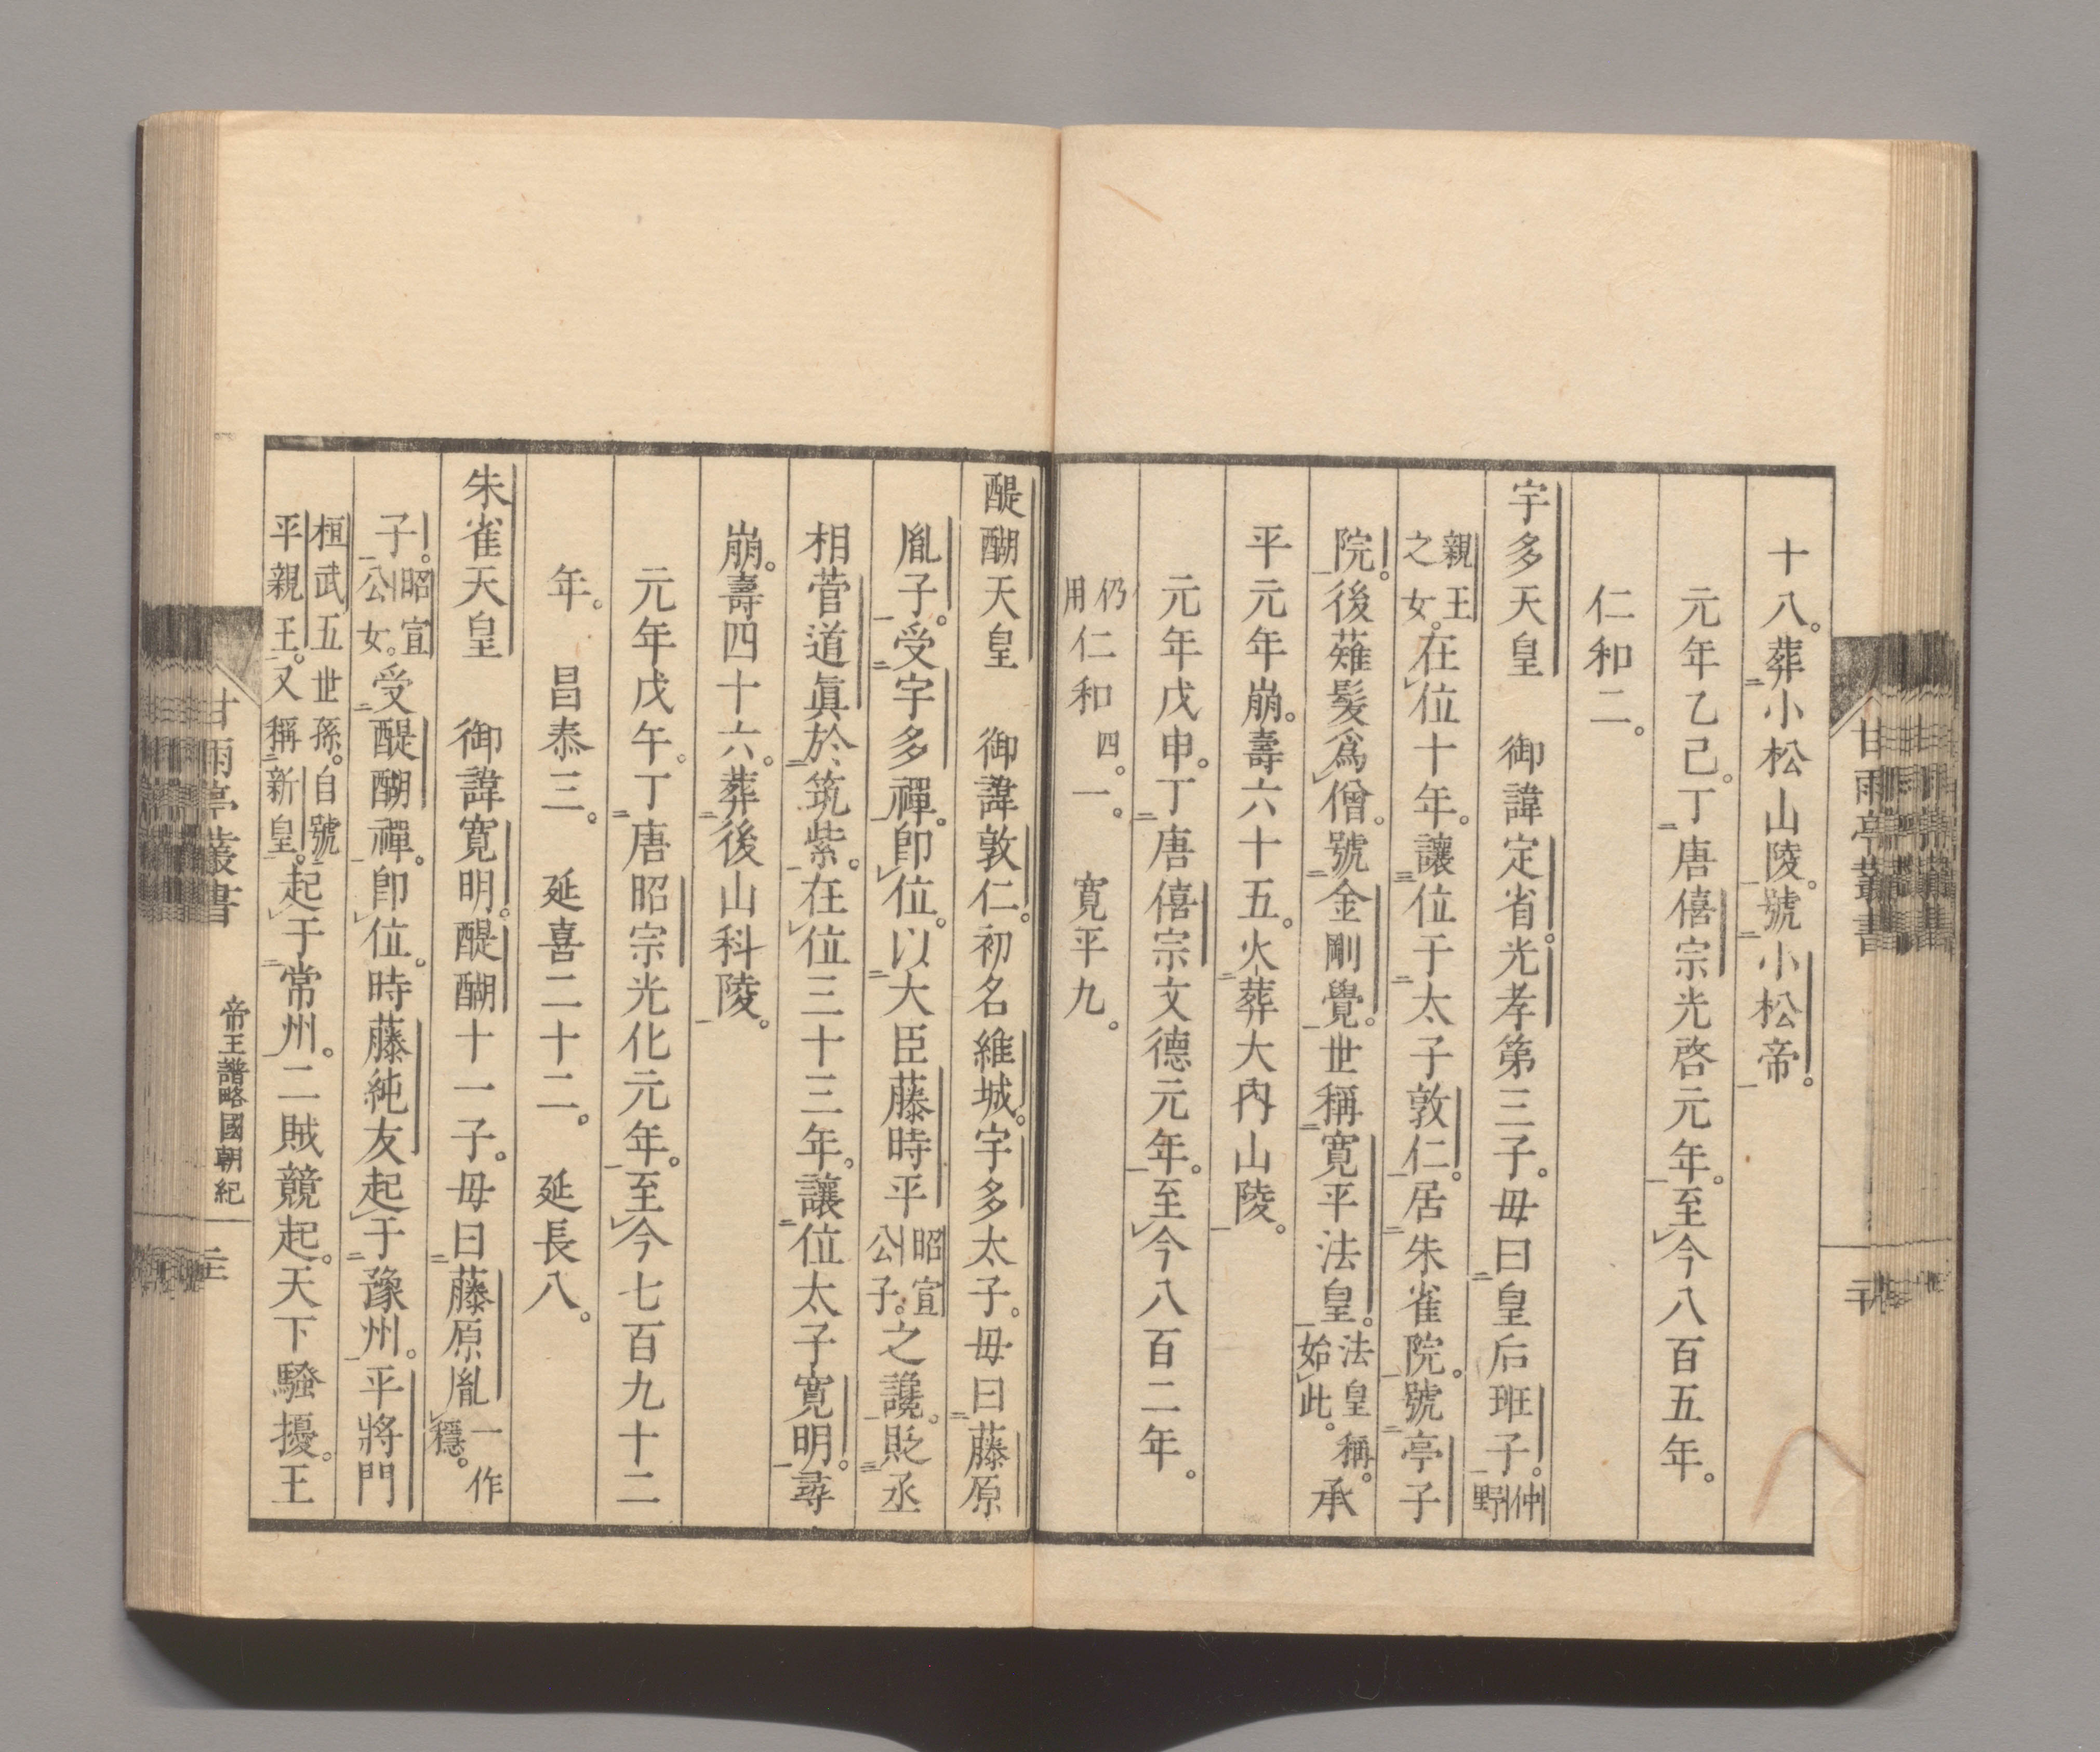 十八。葬小松山陵。號小松帝。
元年乙巳。丁唐僖宗光啓元年。至今八百五年。
仁和二。
宇多天皇　御諱定省。光孝第三子。母曰皇后班子。仲野
親王之女。在位十年。讓位于太子敦仁。居朱雀院。號亭子
院。後薙髮爲僧。號金剛覺。世稱寛平法皇。法皇稱始此。承
平元年崩。壽六十五。火葬大内山陵。
元年戊申。丁唐僖宗文德元年。至今八百二年。
仍用仁和四。一。　寛平九。
醍醐天皇　御諱敦仁。初名維城。宇多太子。母曰藤原
胤子。受宇多禪。卽位。以大臣藤時平昭宣公子。之讒。貶丞
相菅道眞於筑紫。在位三十三年。讓位太子寛明。尋
崩。壽四十六。葬後山科陵。
元年戊午。丁唐昭宗光化元年。至今七百九十二
年。　昌泰三。　延喜二十二。　延長八。
朱雀天皇　御諱寛明。醍醐十一子。母曰藤原胤一作穩。
子。昭宣公女。受醍醐禪。卽位。時藤純友起于豫州。平將門
桓武五世孫。自號平親王。又稱新皇。起于常州。二賊競起。天下騷擾。王
甘雨亭叢書
帝王譜略國朝紀
甘雨亭叢書